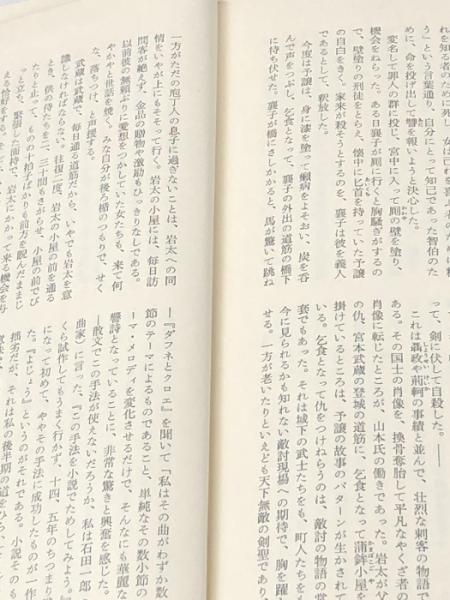 れを知る者のために死し、女は己れを
う」という言葉通り、自分にとって知己であった智伯のた
めに、命を投げ出して讐を報いようと決心した。
変名して罪人の群に投じ、宮中に入って厠の壁を塗り、
機会をねらった。ある日襄子が厠に行くと胸騒ぎがするの
で、壁塗りの刑徒をとらえ、懐中に匕首を持っていた予譲
の自白をきく。家来が殺そうとするのを、襄子は彼を義人
であるとして、釈放した。
今度は予譲は、身に漆を塗って癩病をよそおい、炭を呑
んで声をつぶし、乞食となって、襄子の外出の道筋の橋下
に待ち伏せた。襄子が橋にさしかかると、馬が驚いて跳ね
って、剣に伏して自殺した。――
これは聶政や荊軻の事績と並んで、壮烈な刺客の物語で
ある。その国士の肖像を、換骨奪胎して平凡なやくざ者の
肖像に転じたところが、山本氏の働きであった。岩太が父
の仇、宮本武蔵の登城の道筋に、乞食となって蒲鉾小屋を
掛けているところは、予譲の故事のパターンが生かされて
いる。乞食となって仇をつけねらうのは、敵討の物語の常
套でもあった。それは城下の武士たちをも、町人たちをも
今に見られるかも知れない敵討現場への期待で、胸を躍
せる。一方が老いたりといえども天下無敵の剣聖であり
一方がただの庖丁人の息子に過ぎないことは、岩太への同
情をいやが上にもそそって行く。岩太の小屋には、毎日訪
問客が絶えず、金品の贈物や激励もひっきりなしである。
以前彼の無頼ぶりに愛想をつかしていた女たちも、来て何
やかやと世話を焼く。みな自分が後ろ楯のつもりで、せく
な、落ちつけ、と声援する。
武蔵は武蔵で、毎日通る道筋だから、いやでも岩太を意
識しなければならない。往復二度、岩太の小屋の前を通る
とき、供の侍たちを二、三十間もさがらせ、小屋の前でぴ
たりと止って、ものの十拍子ばかりも前方を睨んだままじ
っと立ち、緊張した面持で、岩太にかかって来る機会を与
える恰好をする。
―『ダフネとクロエ』を聞いて「私はその曲がわずか数
節のテーマによるものであること、単純なその数小節の
ーマ・メロディを変化させるだけで、そんなにも華麗な
響詩となっていることに、非常な驚きと興奮を感じた。
―散文でこの手法が使えないだろうか、私は石田一郎
曲家）に言った、『この手法を小説でためしてみよう。』
くら試作してもうまく行かず、十四、五年のちつまり
になって初めて、ややその手法に成功したものが一作
た。『よじょう』というのがそれである。小説そのも
拙劣だが、それは私の後半期の道をひら